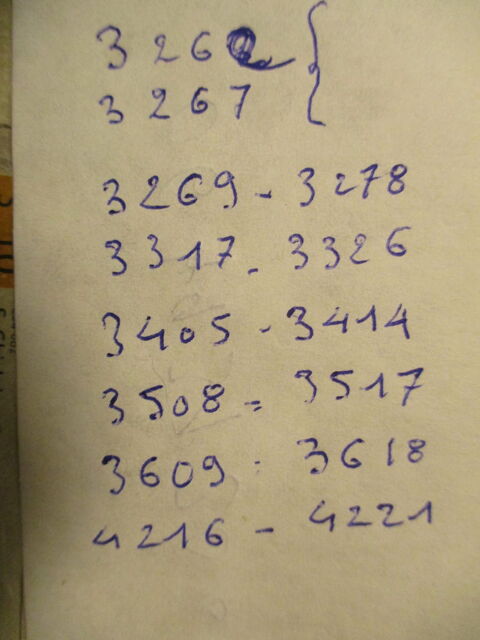 3262 {
3267
3269 - 3278
3317 - 3326
3405 - 3414
3508 - 3517
3609 - 3618
4216 - 4221